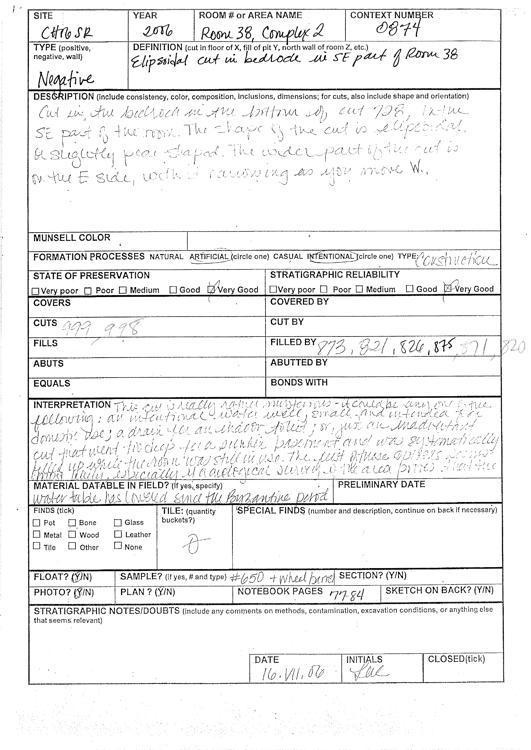 SITE YEAR ROOM # or AREA NAME CONTEXT NUMBER
CH06SR 2006 Room 38, Complex 2 0874
TYPE (positive, negative, wall) DEFINITION (cut in floor of X, fill of pit Y, north wall of room Z, etc.)
Negative Elipsoidal cut in bedrock in SE part of Room 38
DESCRIPTION (include consistency, color, composition, inclusions, dimensions; for cuts, also include shape and orientation)
Cut in the bedrock in the bottom of cut 728, in the
SE part of the room. The shape of the cut is elipsoidal
& slightly pear shaped. The wider part of the cut is
on the E side, with it narrowing as you move W.
MUNSELL COLOR
FORMATION PROCESSES NATURAL ARTIFICIAL (circle one) CASUAL INTENTIONAL (circle one) TYPE: Construction
STATE OF PRESERVATION STRATIGRAPHIC RELIABILITY
Very poor Poor Medium Good Very Good Very poor Poor Medium Good Very Good
COVERS COVERED BY
CUTS 999, 998 CUT BY
FILLS FILLED BY 873, 821, 826, 875, 871, 820
ABUTS ABUTTED BY
EQUALS BONDS WITH
INTERPRETATION This cut is really rather mysterious - it could be any one of the
following: an intentional water well, small and intended for
domestic use; a drain; an indoor toilet; or, just an inadvertent
cut that went too deep for a sunken basement and was systematically
filled up while the room was still in use. The
especially if a geological survey of the area proves that the
MATERIAL DATABLE IN FIELD? (if yes, specify) PRELIMINARY DATE
water table has lowered since the Byzantine period
FINDS (tick) TILE: (quantity buckets?) SPECIAL FINDS (number and description, continue on back if necessary)
Pot Bone Glass
Metal Wood Leather
Tile Other None
FLOAT? (Y/N) SAMPLE? (if yes, # and type) #650 + wheel SECTION? (Y/N)
PHOTO? (Y/N) PLAN? (Y/N) NOTEBOOK PAGES 77-84 SKETCH ON BACK? (Y/N)
STRATIGRAPHIC NOTES/DOUBTS (include any comments on methods, contamination, excavation conditions, or anything else
that seems relevant)
DATE INITIALS CLOSED(tick)
16.VII.06